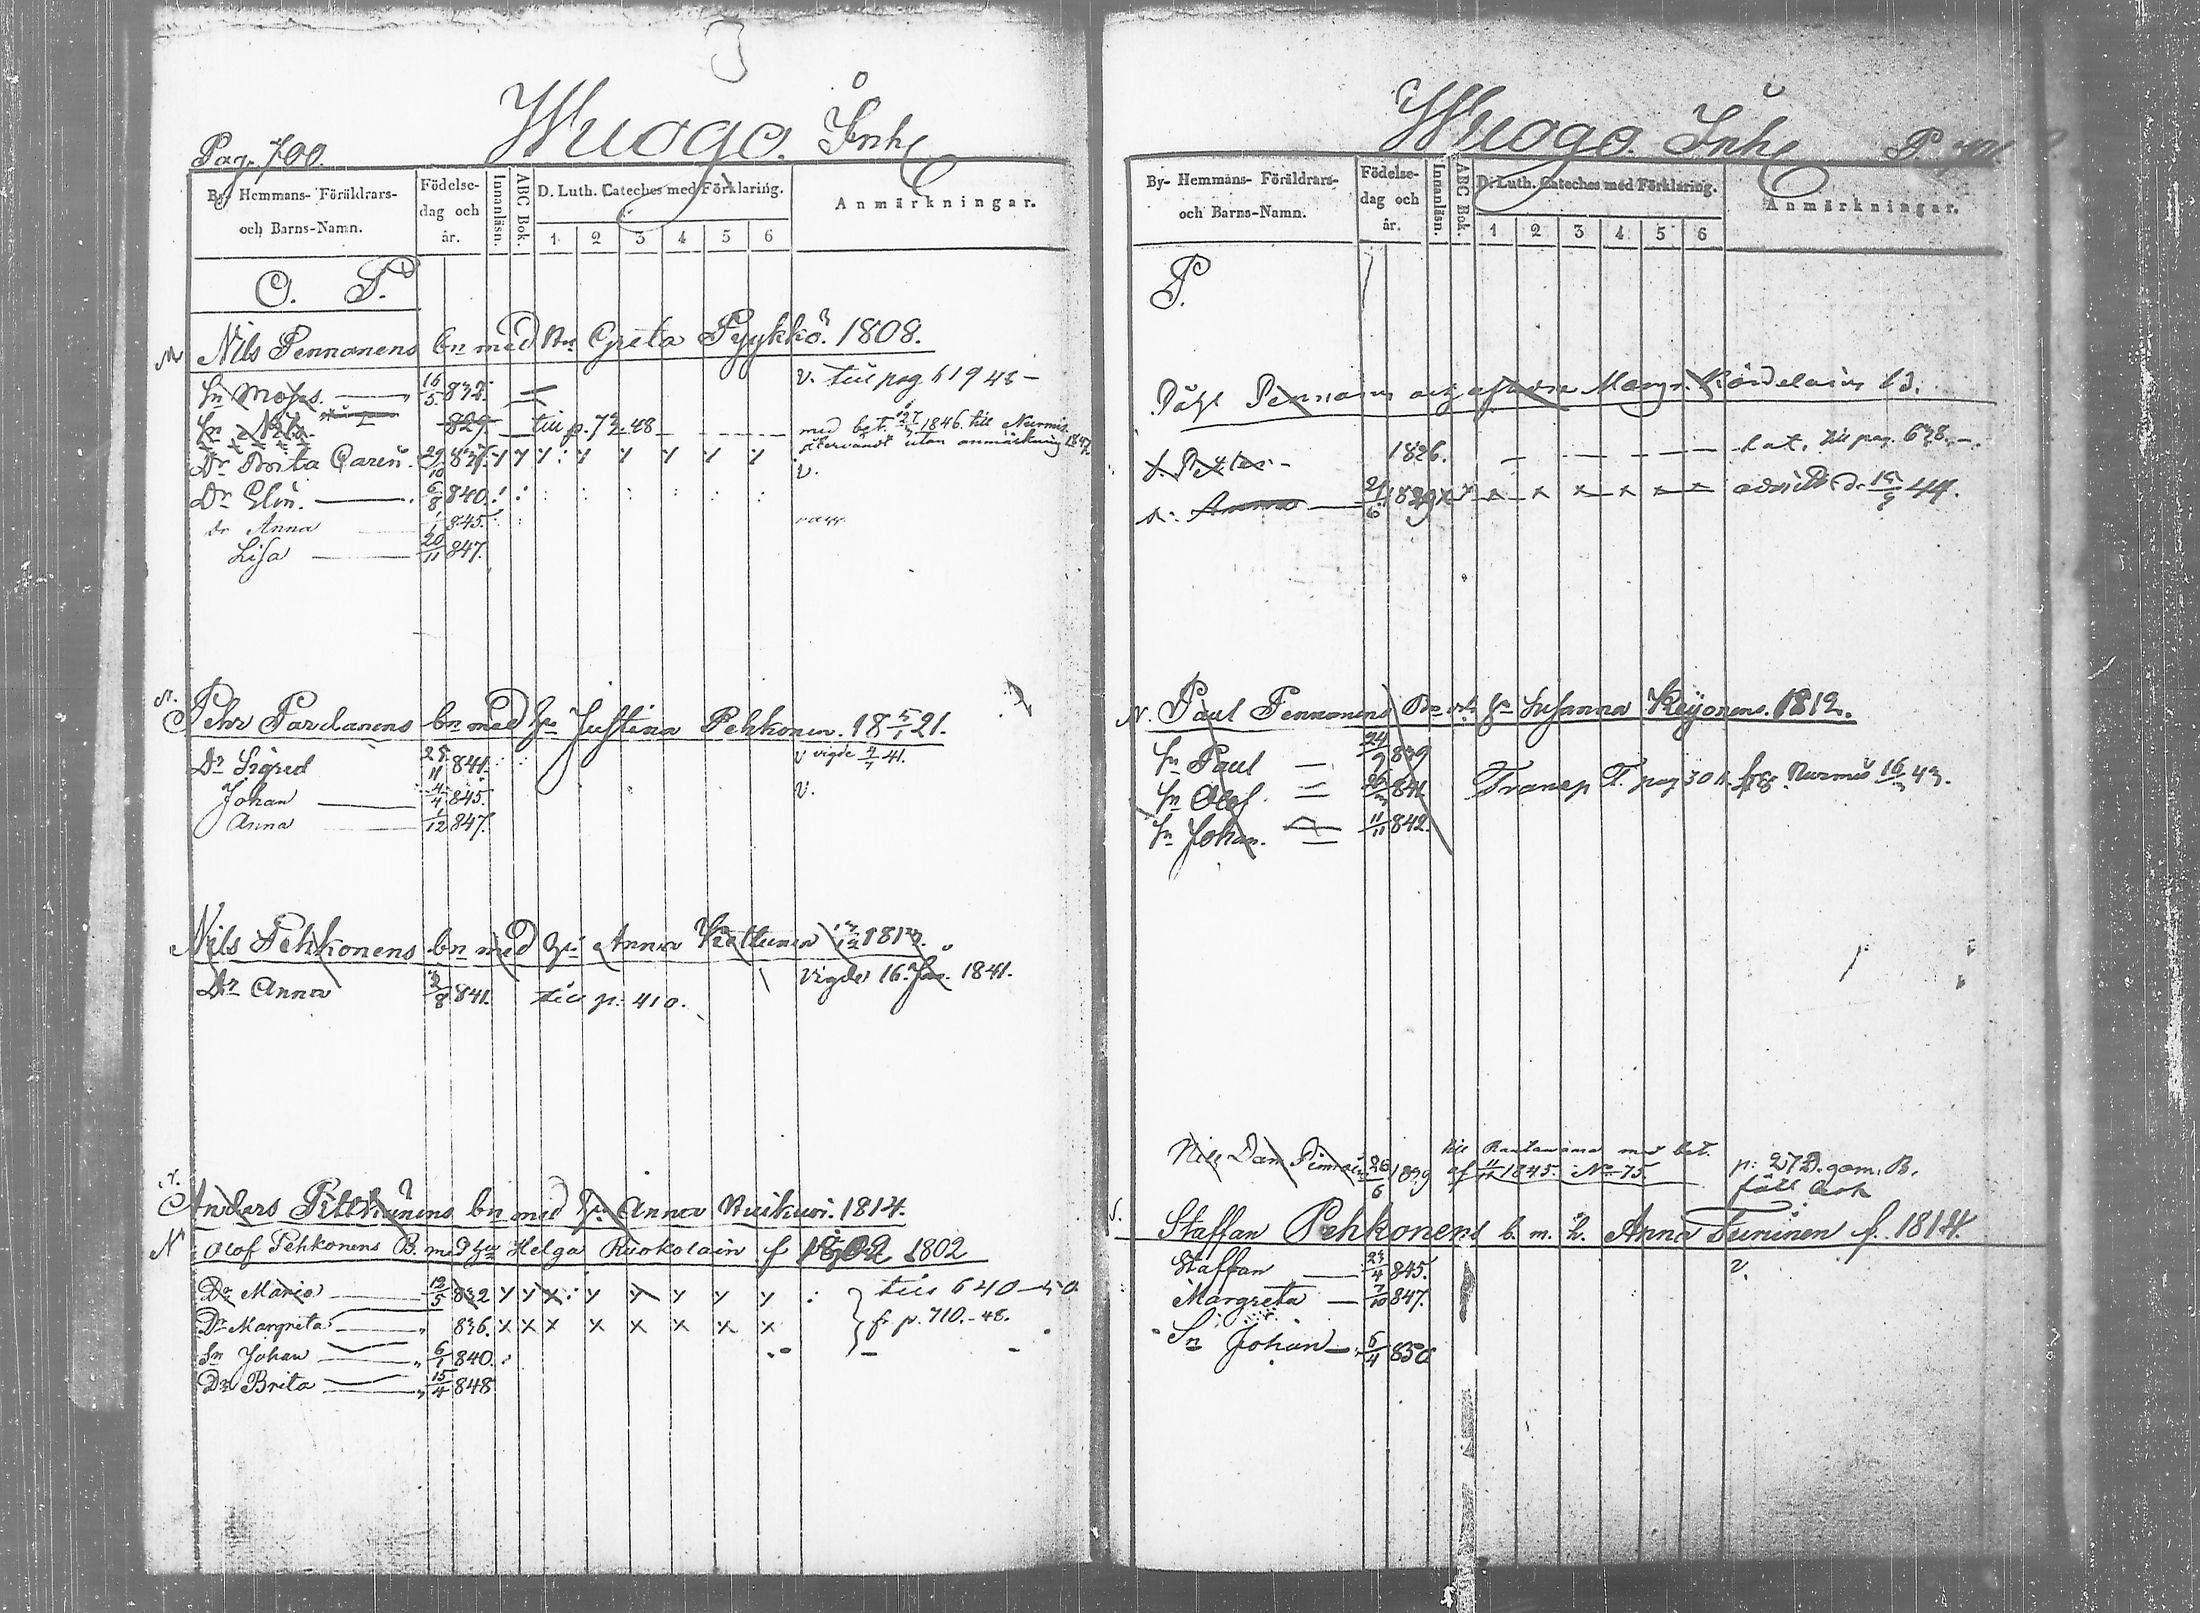 Pag. 700.
Wuogo. Inh
By- Hemmans- Föräldrars-
och Barns-Namn.
Födelse-
dag och
år.
Innanläsn.
ABC Bok.
D. Luth. Cateches med Förklaring.
1 2 3 4 5 6
Anmärkningar.
O. P.
Nils Pennanens bn med Greta Pyykkö. 1808.
Sn Moses. 16/5 832. v. till pag 619 43
Sn Nils 829. till p. 48 med bet. 1846. till Nurmis
återvändt utan anmärkning 1847
Dr Brita Caren. 29/10 837. y y y : y y y y y v.
Dr Elin. 6/8 840.
dr Anna 1/1 845.
Lisa 20/11 847.
Pehr Pardanens bn med hu Justina Pehkonen. 18 5/1 21.
Dr Sigrid 25/11 841. v vigde 41.
Johan 4/4 845. v.
Anna 1/12 847.
Nils Pehkonens bn med hu Anna Kettunen 1813.
Dr Anna 3/8 841. till p. 410. vigde 16. Jan. 1841.
Anders Pitkänens bn med hu Anna 1814.
N Olof Pehkonens B. med hu Helga Ruokolain f 1802 1802
Dr Maria 12/5 832 y y x : y y y y y till 640 - 50
Dr Margreta 836. x x x x x x x x fr p. 710.-48.
Sn Johan 6/1 840.
Dr Brita 15/4 848
Wuogo. Inh
By- Hemmans- Föräldrars-
och Barns-Namn.
Födelse-
dag och
år.
Innanläsn.
ABC Bok.
D. Luth. Cateches med Förklaring.
1 2 3 4 5 6
Anmärkningar.
P.
Påhl Pennanen Margr.
s. Petter 1826. till pag. 638
d. Anna 21/6 1829 x x x x x x x x 44.
N. Paul Pennanens Bn och hu Susanna Keijonens. 1812.
Sn Paul 24/9 839
Sn Olof 26/3 841 Transp T. pag 301. Nurmis 16/3 43.
Sn Johan. 11/11 842.
till Rautavaara med bet.
Nils Dan Pennain 26/6 1829 af 11/11 1845. No 75. p: 27 D. gam. B.
Staffan Pehkonens b. m. h. Anna Tuninen f. 1814.
Staffan 23/4 845. v.
Margreta 7/10 847.
Sn Johan 6/4 850